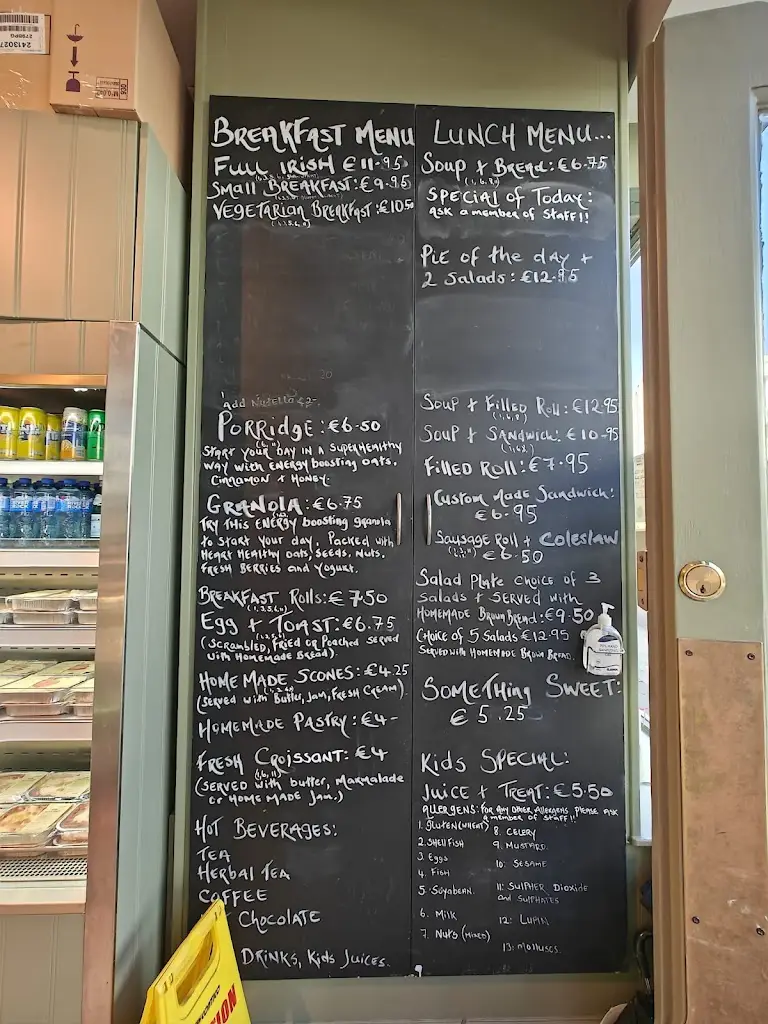 BREAKFAST MENU
FULL IRISH €11-95
SMALL BREAKFAST: €9-95
VEGETARIAN BREAKFAST: €10.50
add Nutella €2-.
PORRIDGE: €6-50
START YOUR DAY IN A SUPERHEALTHY
WAY WITH ENERGY BOOSTING OATS,
CINNAMON + HONEY.
GRANOLA: €6-75
TRY THIS ENERGY boosting granola
to START your day, Packed with
HEART HEALTHY OATS, SEEDS, NUTS,
FRESH BERRIES and YOGURT.
BREAKFAST ROLLS: €7.50
EGG + TOAST: €6.75
(Scrambled, FRIED OR POACHED SERVED
with HOMEMADE BREAD).
HOME MADE SCONES: €4.25
(SERVED with Butter, Jam, FRESH CREAM)
HOMEMADE PASTRY: €4-
FRESH CROISSANT: €4
(SERVED with butter, Marmalade
or HOME MADE Jam.)
HOT BEVERAGES:
TEA
HERBAL TEA
COFFEE
CHOCOLATE
DRINKS, Kids JUICES.
LUNCH MENU...
Soup + Bread: €6-75
SPECIAL of TODAY:
ask a member of Staff!!
PIE OF THE DAY +
2 SALADS: €12-95
SOUP + Filled Roll: €12.95
SOUP + SANDWICH: €10-95
Filled Roll: €7.95
Custom Made Sandwich:
€6-95
Sausage Roll + COLESLAW
€6-50
SALAD PLATE CHOICE OF 3
SALADS + SERVED with
HOMEMADE BROWN BREAD: €9-50
CHOICE OF 5 SALADS €12.95
SERVED with HOMEMADE BROWN BREAD.
SOMETHING SWEET:
€5.25
Kids SPECIAL:
JUICE + TREAT: €5.50
ALLERGENS: FOR ANY OTHER ALLERGENS, PLEASE ASK
a member of STAFF!!
1. Gluten (WHEAT)
2. SHELLFISH
3. Eggs
4. Fish
5. Soyabean.
6. Milk
7. Nuts (MIXED)
8. CELERY
9. MUSTARD.
10: SESAME
11: SULPHER DIOXIDE
and SULPHATES
12: LUPIN
13: Molluscs.